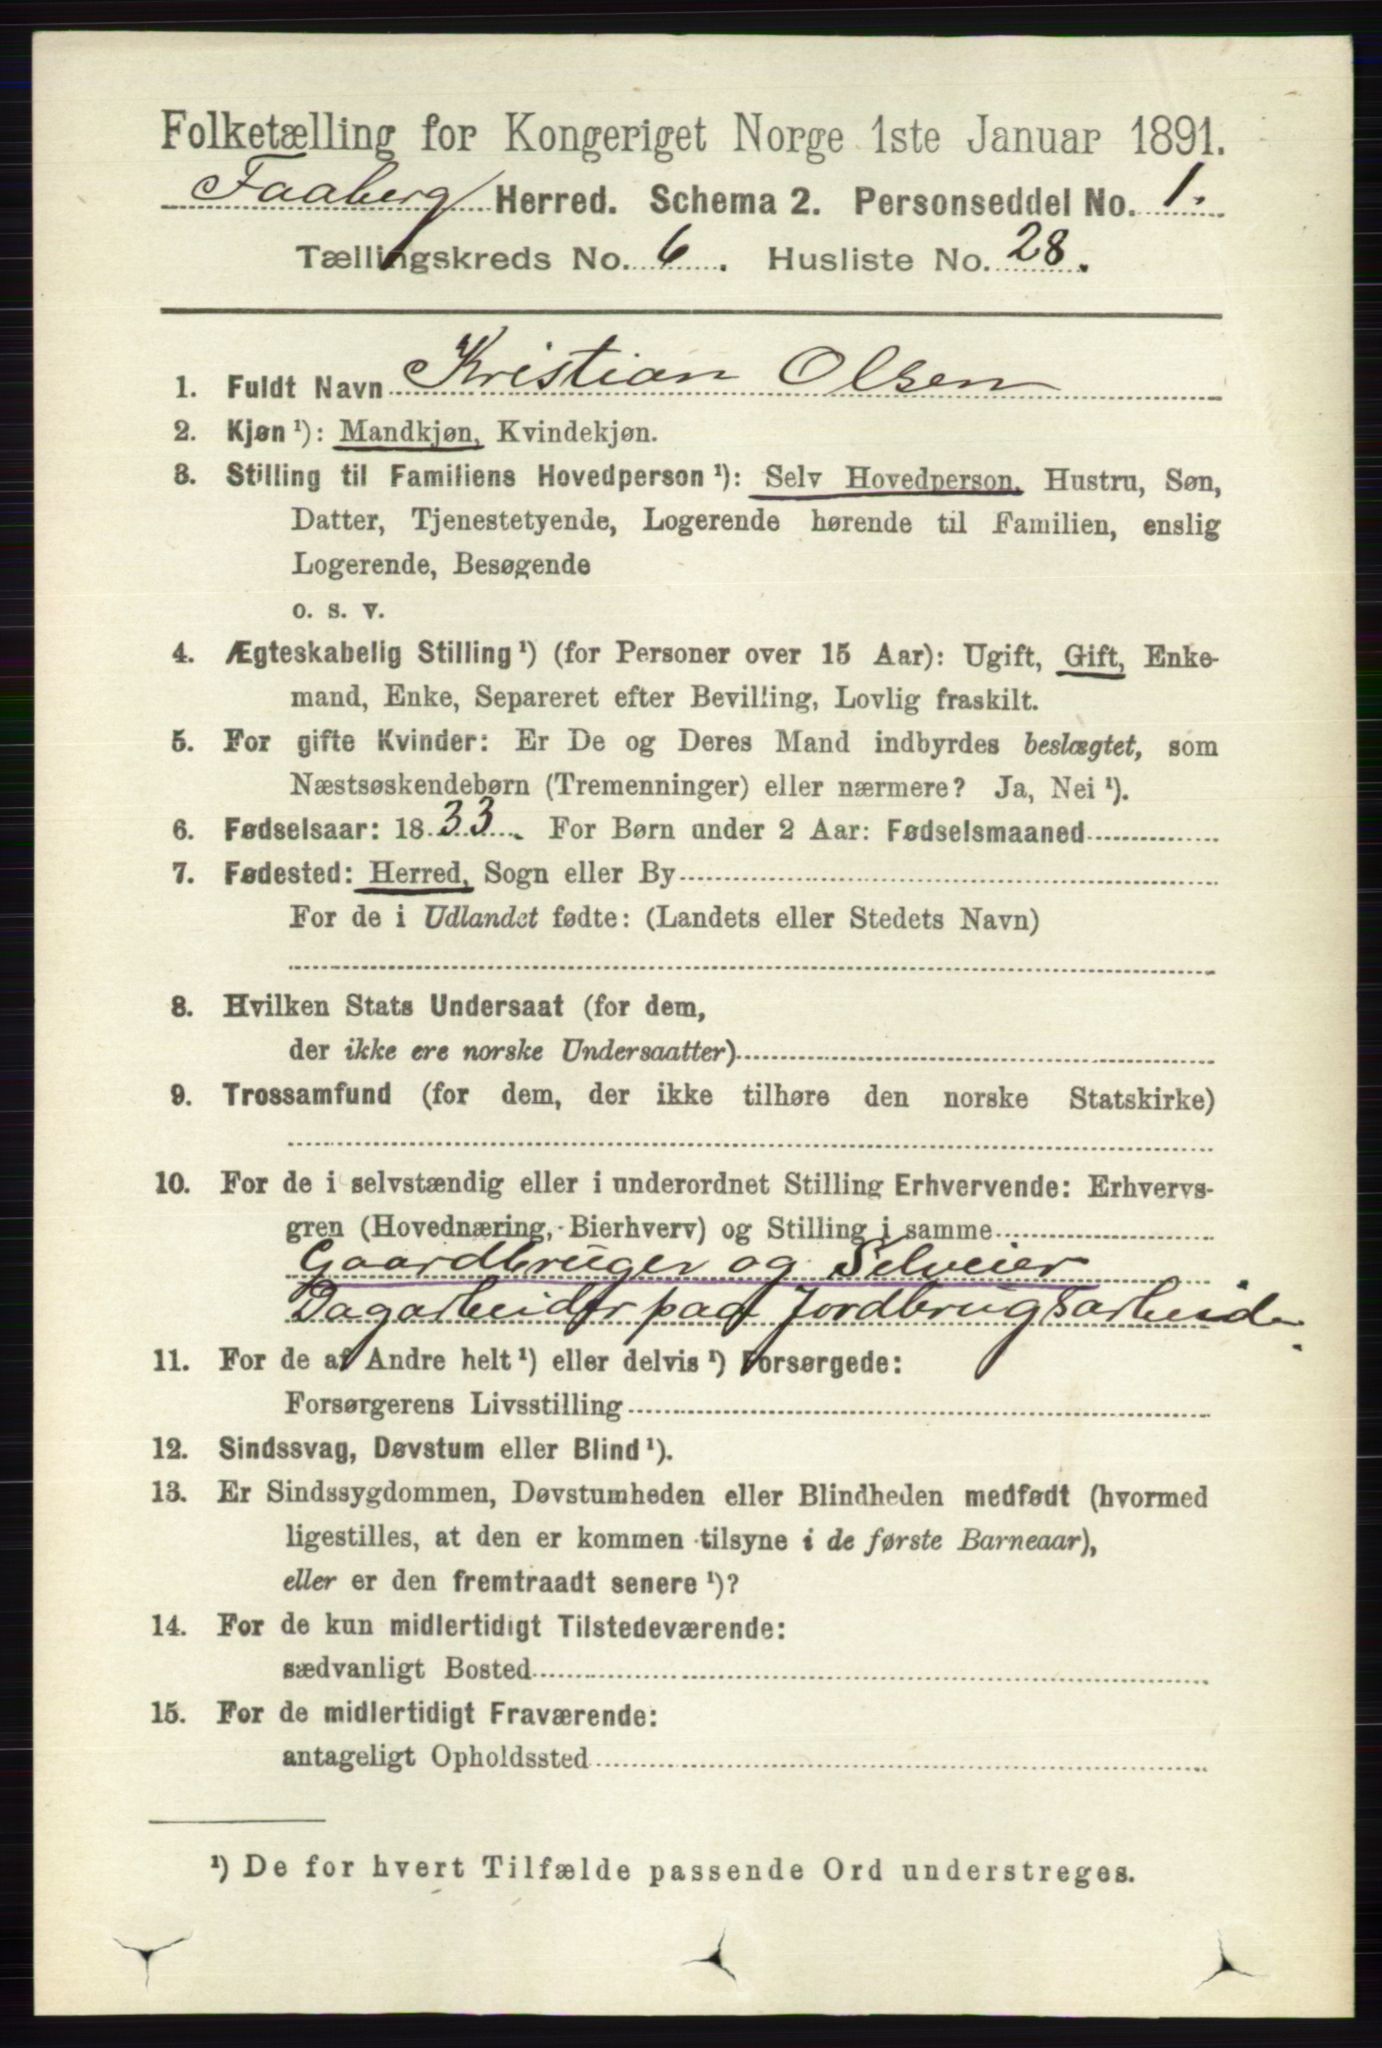 Folketælling for Kongeriget Norge 1ste Januar 1891.
Faaberg Herred. Schema 2. Personseddel No. 1.
Tællingskreds No. 6. Husliste No. 28.
1. Fuldt Navn Kristian Olsen
2. Kjøn ¹): Mandkjøn, Kvindekjøn.
3. Stilling til Familiens Hovedperson ¹): Selv Hovedperson, Hustru, Søn,
Datter, Tjenestetyende, Logerende hørende til Familien, enslig
Logerende, Besøgende
o. s. v.
4. Ægteskabelig Stilling ¹) (for Personer over 15 Aar): Ugift, Gift, Enke-
mand, Enke, Separeret efter Bevilling, Lovlig fraskilt.
5. For gifte Kvinder: Er De og Deres Mand indbyrdes beslægtet, som
Næstsøskendebørn (Tremenninger) eller nærmere? Ja, Nei ¹).
6. Fødselsaar: 1833. For Børn under 2 Aar: Fødselsmaaned
7. Fødested: Herred, Sogn eller By
For de i Udlandet fødte: (Landets eller Stedets Navn)
8. Hvilken Stats Undersaat (for dem,
der ikke ere norske Undersaatter)
9. Trossamfund (for dem, der ikke tilhøre den norske Statskirke)
10. For de i selvstændig eller i underordnet Stilling Erhvervende: Erhvervs-
gren (Hovednæring, Bierhverv) og Stilling i samme
Gaardbruger og Selveier
Dagarbeider paa Jordbrugsarbeide.
11. For de af Andre helt ¹) eller delvis ¹) Forsørgede:
Forsørgerens Livsstilling
12. Sindssvag, Døvstum eller Blind ¹).
13. Er Sindssygdommen, Døvstumheden eller Blindheden medfødt (hvormed
ligestilles, at den er kommen tilsyne i de første Barneaar),
eller er den fremtraadt senere ¹)?
14. For de kun midlertidigt Tilstedeværende:
sædvanligt Bosted
15. For de midlertidigt Fraværende:
antageligt Opholdssted
¹) De for hvert Tilfælde passende Ord understreges.